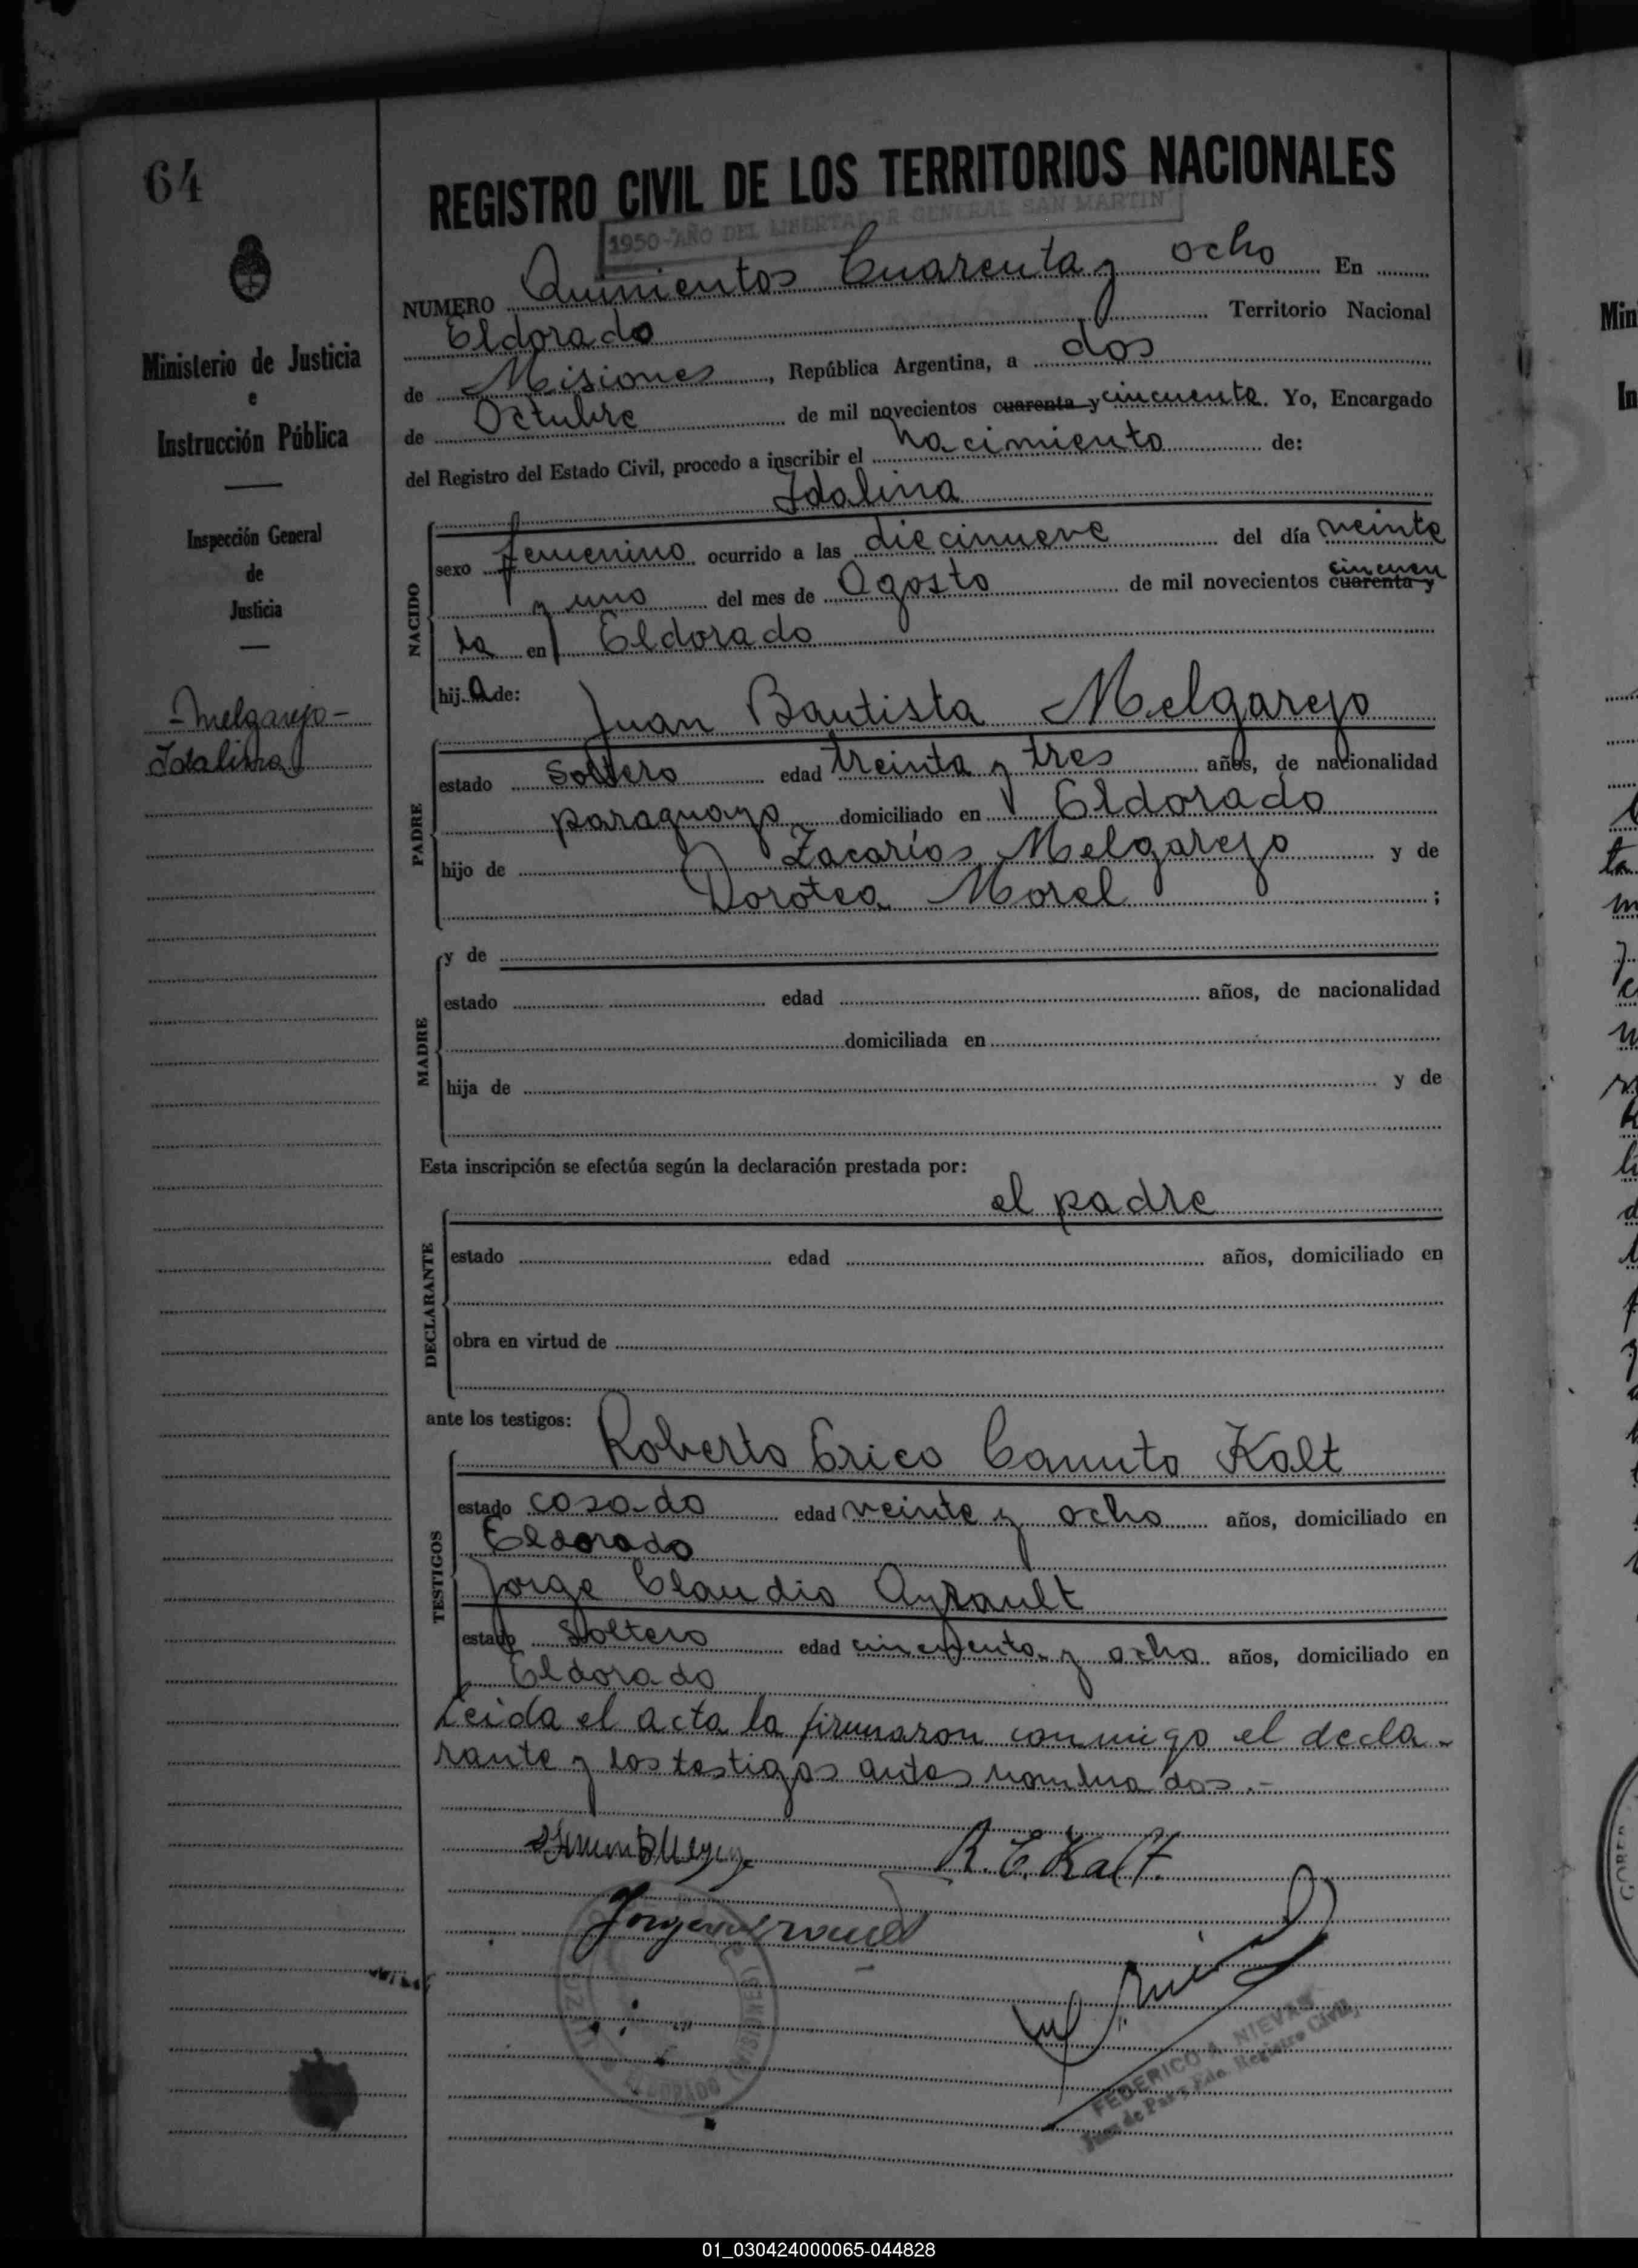 64
Ministerio de Justicia
e
Instrucción Pública
Inspección General
de
Justicia
- Melgarejo -
Idalina
REGISTRO CIVIL DE LOS TERRITORIOS NACIONALES
1950-AÑO DEL LIBERTADOR GENERAL SAN MARTIN
NUMERO Quinientos Cuarenta y ocho En
Eldorado Territorio Nacional
de Misiones, República Argentina, a dos
de Octubre de mil novecientos cuarenta y cincuenta. Yo, Encargado
del Registro del Estado Civil, procedo a inscribir el nacimiento de:
Idalina
NACIDO
sexo femenino ocurrido a las diecinueve del día veinte
y uno del mes de Agosto de mil novecientos cuarenta y cincuen
ta en Eldorado
hija de:
Juan Bautista Melgarejo
PADRE
estado soltero edad treinta y tres años, de nacionalidad
paraguayo domiciliado en Eldorado
hijo de Zacarías Melgarejo y de
Dorotea Morel ;
MADRE
y de
estado edad años, de nacionalidad
domiciliada en
hija de y de
Esta inscripción se efectúa según la declaración prestada por:
el padre
DECLARANTE
estado edad años, domiciliado en
obra en virtud de
ante los testigos:
Roberto Erico Canuto Kalt
TESTIGOS
estado casado edad veinte y ocho años, domiciliado en
Eldorado
Jorge Claudio Ayrault
estado soltero edad cincuenta y ocho años, domiciliado en
Eldorado
Leida el acta la firmaron conmigo el decla-
rante y los testigos antes nombrados.-
R. E. Kalt.
ELDORADO (MISIONES)
FEDERICO A. NIEVAS
Juez de Paz y Edo. Registro Civil
01_030424000065-044828